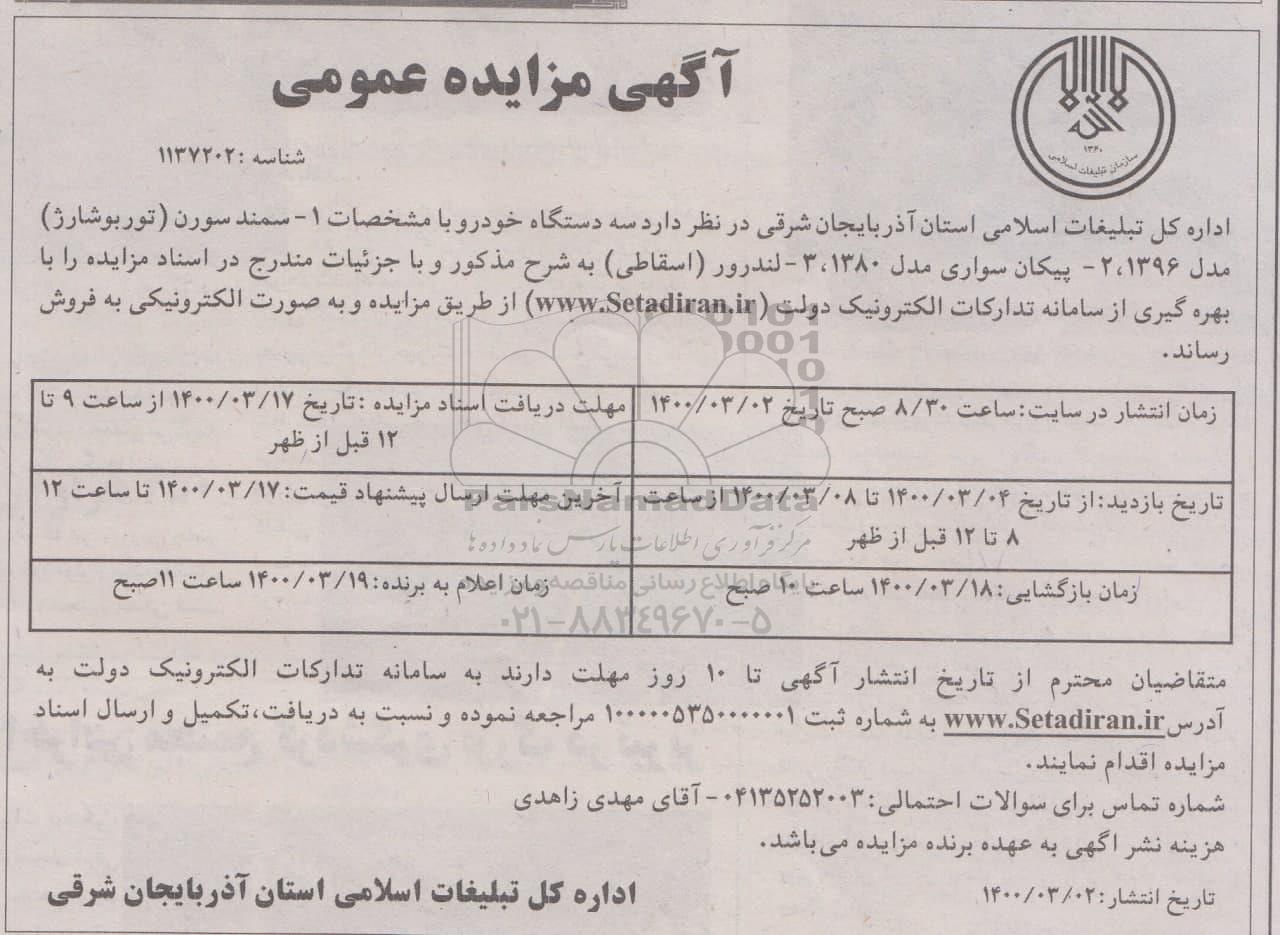 آگهی مزایده عمومی
۱۳۶۰
سازمان تبلیغات اسلامی
شناسه :۱۱۳۷۲۰۲
اداره کل تبلیغات اسلامی استان آذربایجان شرقی در نظر دارد سه دستگاه خودرو با مشخصات ۱-سمند سورن (توربوشارژ)
مدل ۲،۱۳۹۶- پیکان سواری مدل ۳،۱۳۸۰-لندرور (اسقاطی) به شرح مذکور و با جزئیات مندرج در اسناد مزایده را با
بهره گیری از سامانه تدارکات الکترونیک دولت (www.Setadiran.ir) از طریق مزایده و به صورت الکترونیکی به فروش
رساند.
زمان انتشار در سایت:ساعت ۸/۳۰ صبح تاریخ ۱۴۰۰/۰۳/۰۲
مهلت دریافت اسناد مزایده :تاریخ ۱۴۰۰/۰۳/۱۷ از ساعت ۹ تا
۱۲ قبل از ظهر
تاریخ بازدید:از تاریخ ۱۴۰۰/۰۳/۰۴ تا ۱۴۰۰/۰۳/۰۸ از ساعت
۸ تا ۱۲ قبل از ظهر
آخرین مهلت ارسال پیشنهاد قیمت:۱۴۰۰/۰۳/۱۷ تا ساعت ۱۲
زمان بازگشایی:۱۴۰۰/۰۳/۱۸ ساعت ۱۰ صبح
زمان اعلام به برنده:۱۴۰۰/۰۳/۱۹ ساعت ۱۱صبح
ParsNamadData
مرکز فرآوری اطلاعات پارس نماد داده ها
پایگاه اطلاع رسانی مناقصه و مزایده
۰۲۱-۸۸۳۴۹۶۷۰-۵
متقاضیان محترم از تاریخ انتشار آگهی تا ۱۰ روز مهلت دارند به سامانه تدارکات الکترونیک دولت به
آدرس www.Setadiran.ir به شماره ثبت ۱۰۰۰۰۰۵۳۵۰۰۰۰۰۰۱ مراجعه نموده و نسبت به دریافت،تکمیل و ارسال اسناد
مزایده اقدام نمایند.
شماره تماس برای سوالات احتمالی:۰۴۱۳۵۲۵۲۰۰۳-آقای مهدی زاهدی
هزینه نشر اگهی به عهده برنده مزایده می‌باشد.
تاریخ انتشار:۱۴۰۰/۰۳/۰۲
اداره کل تبلیغات اسلامی استان آذربایجان شرقی